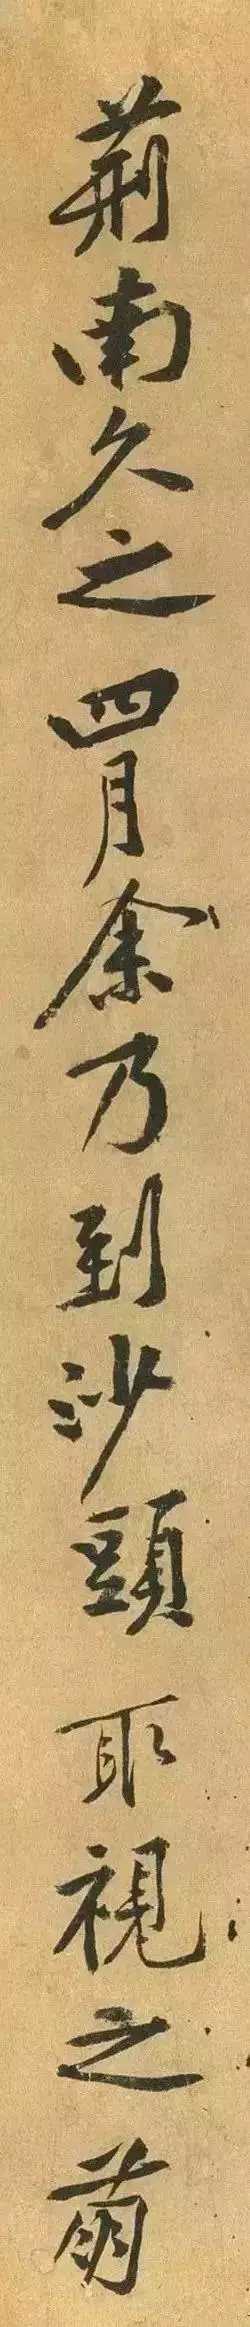 荊南久之四月余乃到沙頭取視之萌